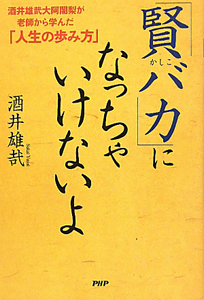 酒井雄哉大阿闍梨が
老師から学んだ
「人生の歩み方」
「賢バカ」に
かしこ
なっちゃ
いけないよ
酒井雄哉
PHP